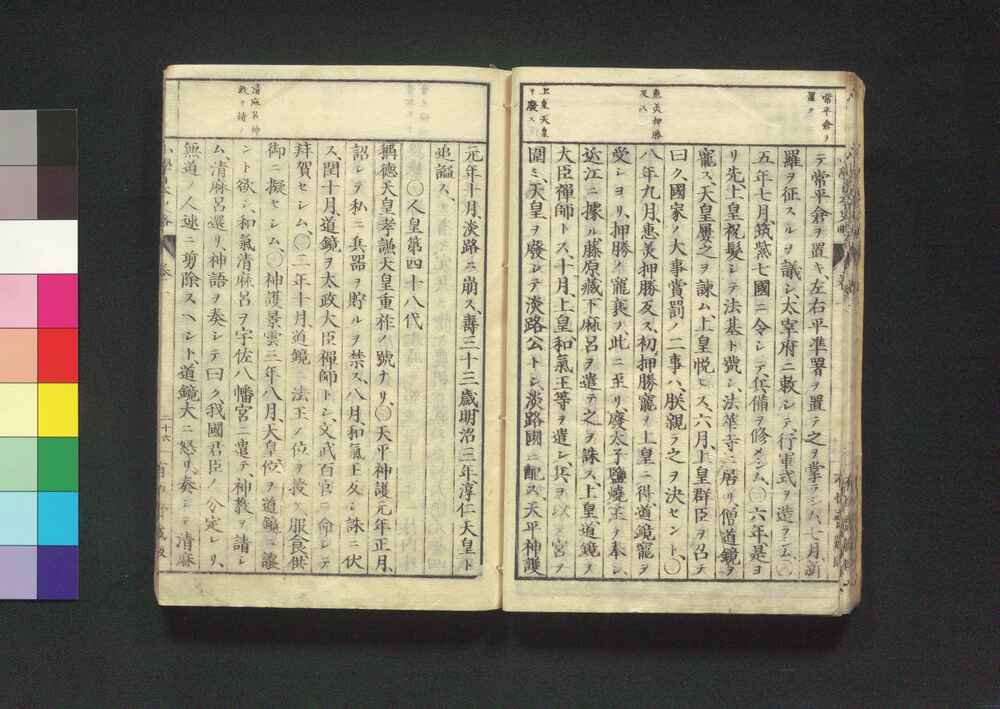 常平倉ヲ
置ク
惠美押勝
反ス
上皇天皇
ヲ廢ス
テ常平倉ヲ置キ、左右平準署ヲ置テ之ヲ掌ラシム、七月新
羅ヲ征スルヲ議シ太宰府ニ敕シテ、行軍式ヲ造ラシム、〇
五年七月、筑紫七國ニ令シテ、兵備ヲ修メシム、〇六年、是ヨ
リ先、上皇祝髮シテ法基ト號シ、法華寺ニ居リ僧道鏡ヲ
寵ス、天皇屢之ヲ諫ム、上皇悅ビス、六月、上皇群臣ヲ召テ
曰ク、國家ノ大事賞罰ノ二事ハ、朕親ラ之ヲ決セント、〇
八年九月、惠美押勝反ス、初押勝寵ヲ上皇ニ得、道鏡寵ヲ
受シヨリ、押勝ノ寵衰フ、此ニ至リ廢太子鹽燒王ヲ奉シ、
近江ニ據ル、藤原藏下麻呂ヲ遣テ之ヲ誅ス、上皇道鏡ヲ
大臣禪師トス、十月上皇和氣王等ヲ遣シ、兵ヲ以テ宮ヲ
圍ミ、天皇ヲ廢シテ淡路公トシ、淡路國ニ配ス、天平神護
清麻呂神
教ヲ請フ
元年十月、淡路ニ崩ス、壽三十三歲、明治三年、淳仁天皇ト
追謚ス、
〇人皇第四十八代
稱德天皇孝謙天皇重祚ノ號ナリ、〇天平神護元年正月、
詔シテ私ニ兵器ヲ貯ルヲ禁ス、八月和氣王久シ誅ニ伏
ス、閏十月、道鏡ヲ太政大臣禪師トシ、文武百官ニ命シテ
拜賀セシム、〇二年十月、道鏡ニ法王ノ位ヲ授ケ、服食供
御ニ擬セシム、〇神護景雲三年八月、天皇位ヲ道鏡ニ讓
ント欲シ、和氣清麻呂ヲ宇佐八幡宮ニ遣テ、神教ヲ請シ
ム、清麻呂還リ、神語ヲ奏シテ曰ク、我國君臣ノ分定レリ、
無道ノ人速ニ剪除スヘシト、道鏡大ニ怒リ、奏シテ清麻
二十六